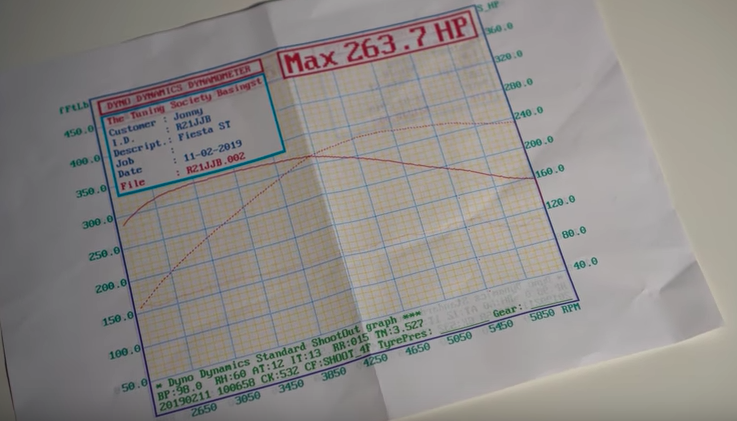 S_HP
Max 263.7 HP
DYNO DYNAMICS DYNAMOMETER
The Tuning Society Basingst
Customer : Jonny
I.D. : R21JJB
Descript.: Fiesta ST
Job :
Date : 11-02-2019
File : R21JJB.002
fFtLb
450.0
400.0
350.0
300.0
250.0
200.0
150.0
100.0
50.0
360.0
320.0
280.0
240.0
200.0
160.0
120.0
80.0
40.0
Dyno Dynamics Standard ShootOut graph ***
BP:98.0 RH:60 AT:12 IT:13 RR:015 TN:3.527
20190211 100658 CK:532 CF:SHOOT_4F TyrePres: Gear:
2650 3050 3450 3850 4250 4650 5050 5450 5850 RPM